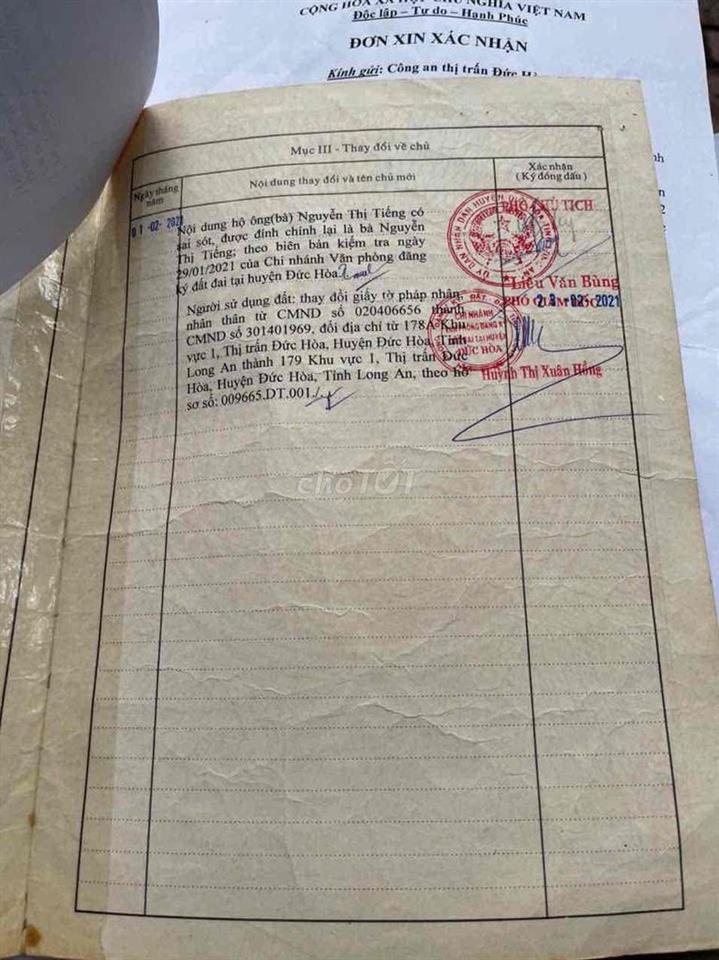 CỘNG HÒA XÃ HỘI CHỦ NGHĨA VIỆT NAM
Độc lập – Tự do – Hạnh Phúc
ĐƠN XIN XÁC NHẬN
Kính gửi: Công an thị trấn Đức
Mục III - Thay đổi về chủ
Ngày tháng năm
Nội dung thay đổi và tên chủ mới
Xác nhận
(Ký đóng dấu)
01-02-2021
Nội dung hộ ông(bà) Nguyễn Thị Tiếng có
sai sót, được đính chính lại là bà Nguyễn
Thị Tiếng; theo biên bản kiểm tra ngày
29/01/2021 của Chi nhánh Văn phòng đăng
ký đất đai tại huyện Đức Hòa
PHÓ CHỦ TỊCH
Liêu Văn Bùng
Người sử dụng đất: thay đổi giấy tờ pháp nhân,
nhân thân từ CMND số 020406656 thành
CMND số 301401969, đổi địa chỉ từ 178A Khu
vực 1, Thị trấn Đức Hòa, Huyện Đức Hòa, Tỉnh
Long An thành 179 Khu vực 1, Thị trấn Đức
Hòa, Huyện Đức Hòa, Tỉnh Long An, theo hồ
sơ số: 009665.DT.001
PHÓ GIÁM ĐỐC
23-02-2021
CHI NHÁNH
ĐỨC HÒA
Huỳnh Thị Xuân Hồng
choTỐT